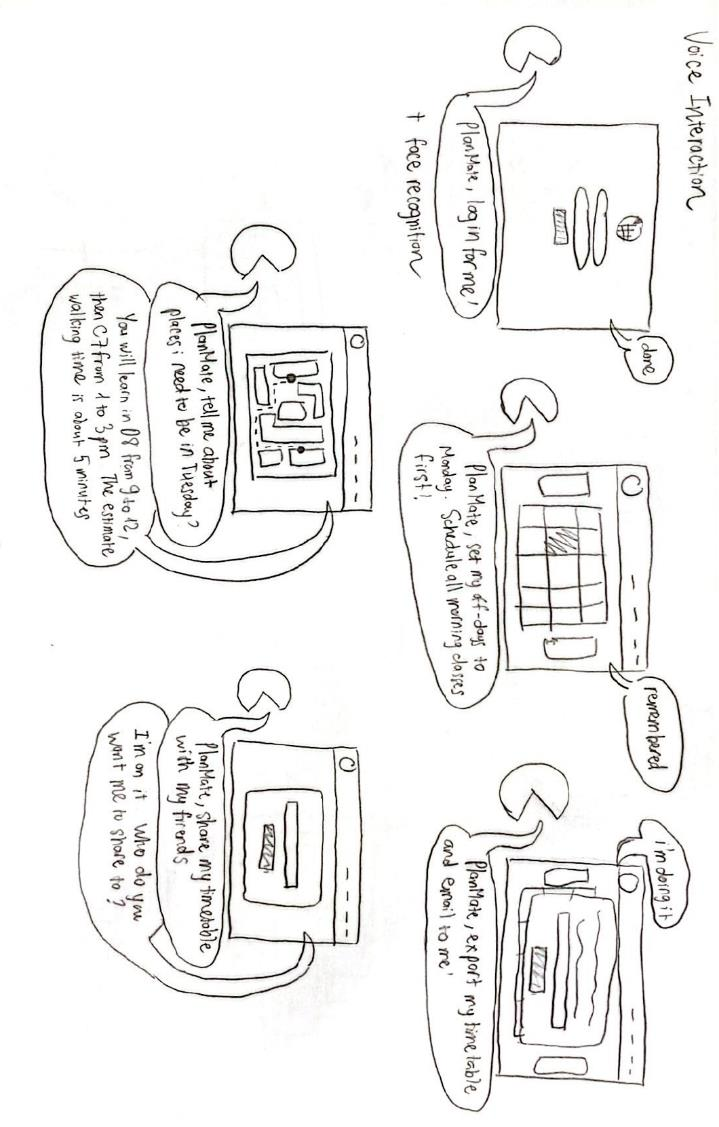 Voice Interaction
done
PlanMate, log in for me!
+ face recognition
remembered
PlanMate, set my off-days to
Monday. Schedule all morning classes
first!
i'm doing it
PlanMate, export my timetable
and email to me!
PlanMate, tell me about
places i need to be in Tuesday?
You will learn in D8 from 9 to 12,
then C7 from 1 to 3 pm. The estimate
walking time is about 5 minutes
PlanMate, share my timetable
with my firends
I'm on it. Who do you
want me to share to?